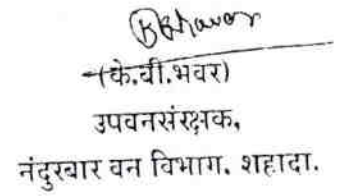 (के.बी.भवर)
उपवनसंरक्षक,
नंदुरबार वन विभाग. शहादा.